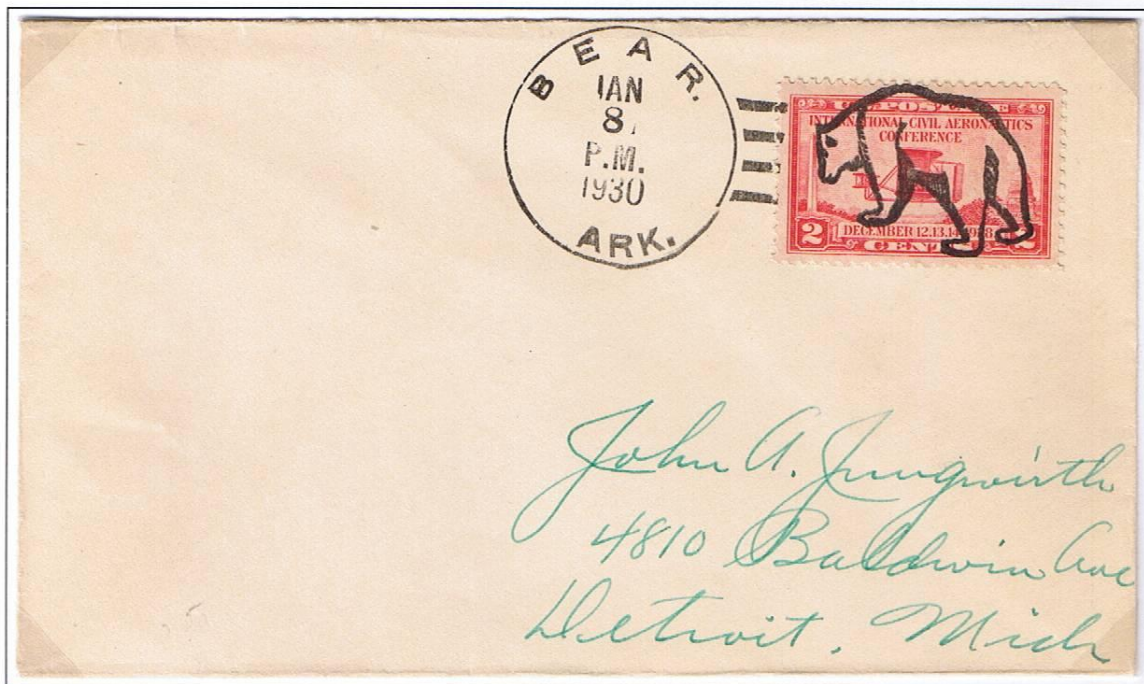 BEAR.
JAN
8
P.M.
1930
ARK.
U.S. POSTAGE
INTERNATIONAL CIVIL AERONAUTICS
CONFERENCE
2 DECEMBER 12.13.14.1928 2
CENTS
John A. Jungwirth
4810 Baldwin Ave
Detroit, Mich